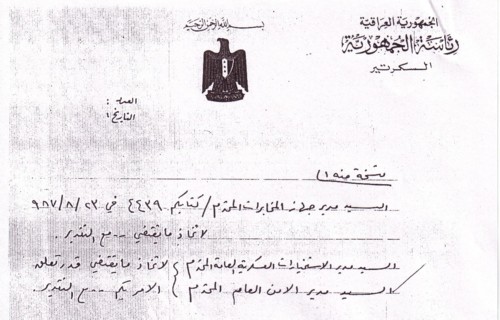 بسم الله الرحمن الرحيم
الجمهورية العراقية
رئاسة الجمهورية
السكرتير
العدد :
التاريخ :
نسخة منه /
السيد مدير جهاز المخابرات المحترم / كتابكم ٤٤٣٩ في ٩٨٧/٨/٢٣
لاتخاذ ما يقتضي .. مع التقدير .
السيد مدير الاستخبارات العسكرية العامة المحترم } لاتخاذ ما يقتضي قدر تعلق
السيد مدير الامن العام المحترم } الامر بكم .. مع التقدير .